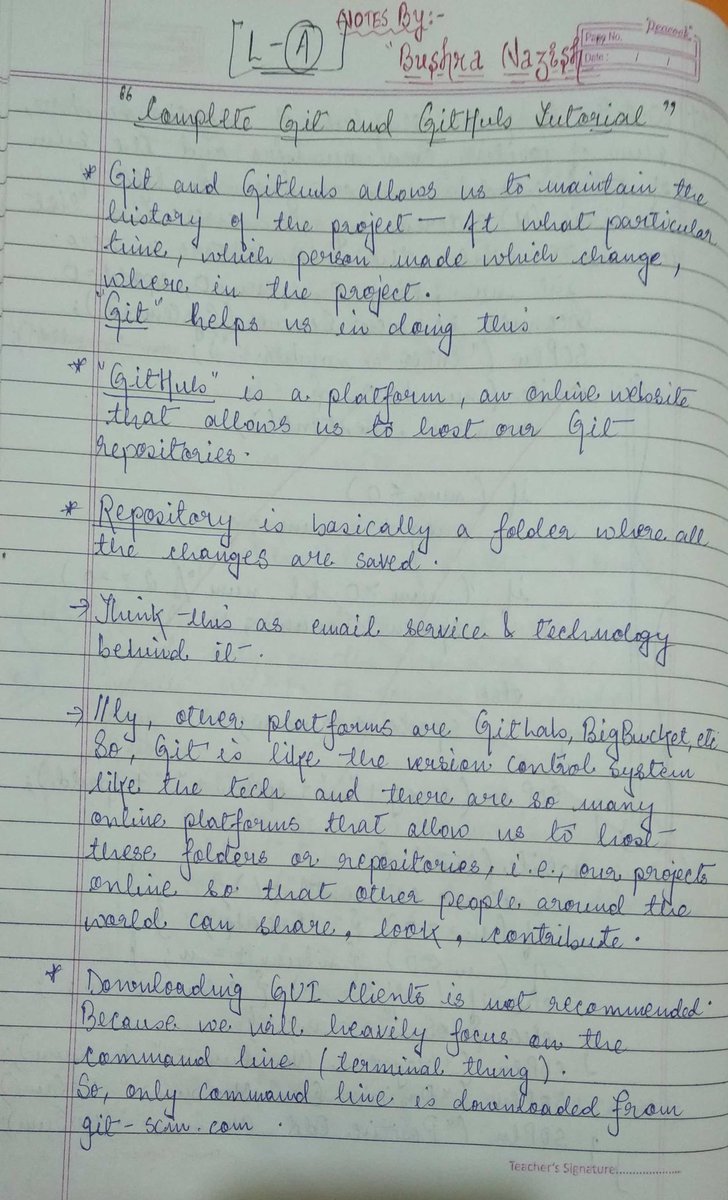 NOTES By:-
[L-A]
"Bushra Nazish
"Peacock"
Page No.
Date: / /
"Complete Git and GitHub Tutorial"
* Git and GitHub allows us to maintain the
history of the project — At what particular
time, which person made which change,
where in the project.
"Git" helps us in doing this.
* "GitHub" is a platform, an online website
that allows us to host our Git
repositories.
* Repository is basically a folder where all
the changes are saved.
→ Think this as email service & technology
behind it.
→ Illy, other platforms are Githab, BigBucket, etc
So, Git is like the version control system
like the tech and there are so many
online platforms that allow us to host
these folders or repositories, i.e., our projects
online so that other people around the
world can share, look, contribute.
* Downloading GUI Clients is not recommended.
Because we will heavily focus on the
command line (terminal thing).
So, only command line is downloaded from
git-scm.com .
Teacher's Signature..................